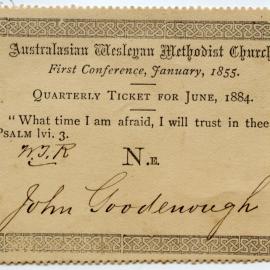 Australasian Wesleyan Methodist Church
First Conference, January, 1855.
QUARTERLY TICKET FOR JUNE, 1884.
"What time I am afraid, I will trust in thee
PSALM lvi. 3.
W.T.R N.E.
John Goodenough